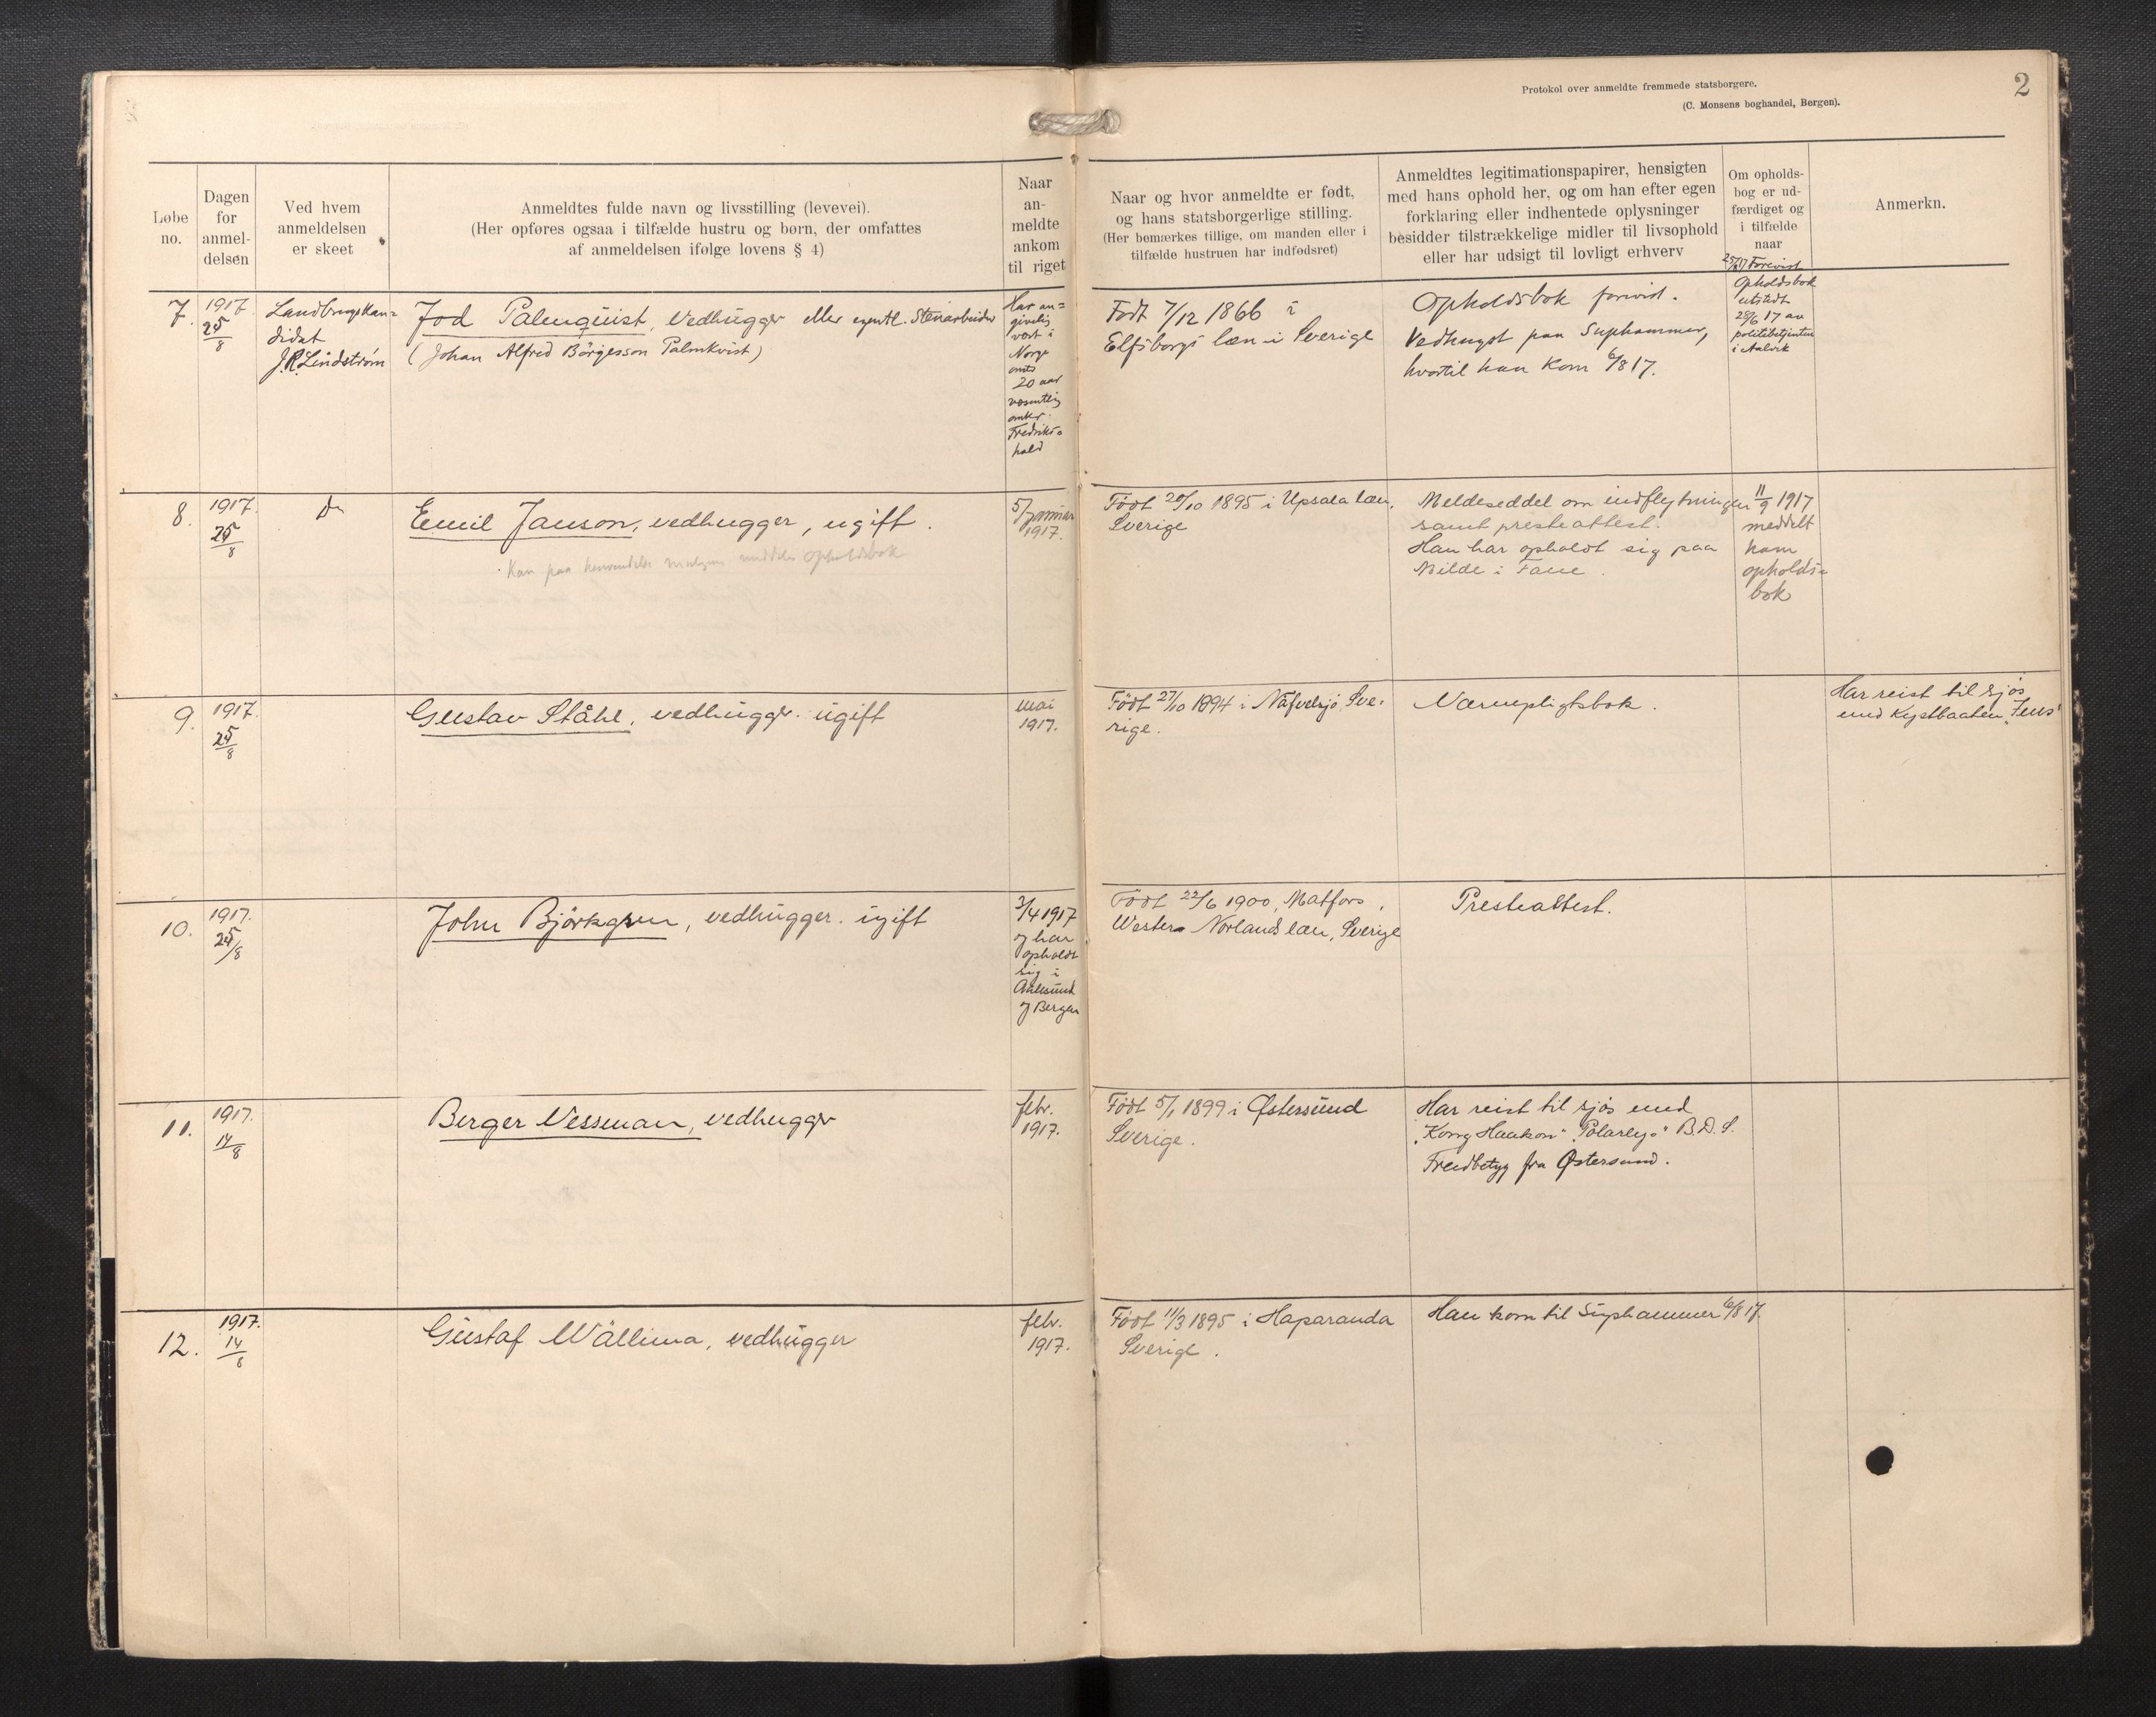 Protokol over anmeldte fremmede statsborgere.
(C. Monsens boghandel, Bergen).
2
Løbe
no.
Dagen
for
anmel-
delsen
Ved hvem
anmeldelsen
er skeet
Anmeldtes fulde navn og livsstilling (levevei).
(Her opføres ogsaa i tilfælde hustru og børn, der omfattes
af anmeldelsen ifølge lovens § 4)
Naar
an-
meldte
ankom
til riget
Naar og hvor anmeldte er født,
og hans statsborgerlige stilling.
(Her bemærkes tillige, om manden eller i
tilfælde hustruen har indfødsret)
Anmeldtes legitimationspapirer, hensigten
med hans ophold her, og om han efter egen
forklaring eller indhentede oplysninger
besidder tilstrækkelige midler til livsophold
eller har udsigt til lovligt erhverv
Om opholds-
bog er ud-
færdiget og
i tilfælde
naar
Anmerkn.
7.
1917
25/8
Landbrugskan=
didat
J.R. Lindstrøm
Jod Palmquist, vedhugger eller egentl. Stenarbeider
(Johan Alfred Börgesson Palmkvist)
Har an=
givelig
vært i
Norge
omts
20 aar
væsentlig
omkr.
Fredriks=
hald
Født 7/12 1866 i
Elfsborgs læn i Sverige
Opholdsbok forevist.
Vedhugst paa Suphammer,
hvortil han kom 6/8 17.
Forevist
Opholdsbok
utstedt
28/6 17 av
politibetjenten
i Aalvik
8.
1917.
25/8
Do
Emil Janson, vedhugger, ugift.
Kan paa henvendelse meddeles opholdsbok
5/januar
1917.
Født 20/10 1895 i Upsala læn,
Sverige
Meldeseddel om indflytningen
samt presteattest.
Han har opholdt sig paa
Milde i Fane.
11/9 1917
meddelt
ham
opholds=
bok
9.
1917.
25/8
Gustav Ståhl, vedhugger. ugift
mai
1917.
Født 27/10 1894 i Näfvelsjö, Sve-
rige.
Værnepligtsbok.
Har reist til sjøs
med Kystbaaten "Jens"
10.
1917.
25/8
John Björkgren, vedhugger. ugift
3/4 1917
og har
opholdt
sig i
Aalesund
og Bergen
Født 22/6 1900, Matfors,
Wester Norlands læn, Sverige
Presteattest.
11.
1917.
14/8
Berger Wessman, vedhugger
febr.
1917.
Født 5/1 1899 i Østersund
Sverige.
Har reist til sjøs med
"Kong Haakon" "Polarlys" B.D.S.
Fredbetyg fra Østersund.
12.
1917.
14/8
Gustaf Wällima, vedhugger
febr.
1917.
Født 11/3 1895 i Haparanda
Sverige.
Han kom til Suphammer 6/8 17.